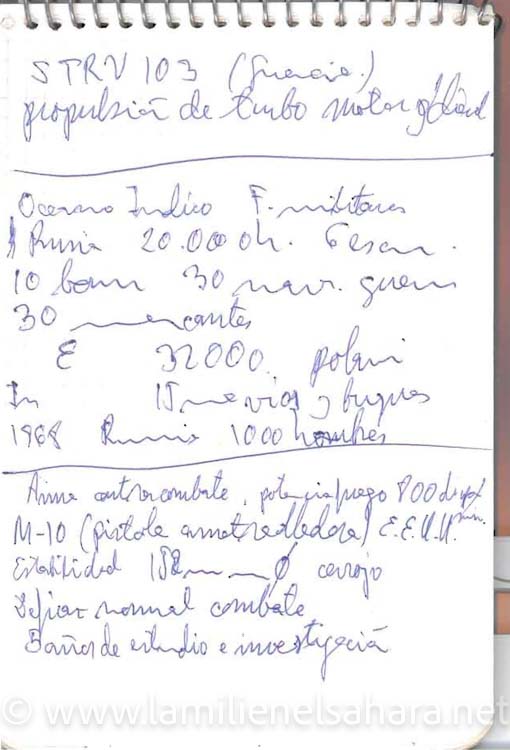 STRV 103 (Suecia)
propulsión de turbo motor
Oceano Indico F. militares
Rusia 20.000 h. 6 escu.
10 bom 30 nav. guerra
30 mercantes
E 32000
In 15 navios y buques
1968 Rusia 1000 hombres
Arma contracombate, potencia fuego 800 disp/
min.
M-10 (pistola ametralladora) E.E.U.U.
Estabilidad cerrojo
normal combate
5 años de estudio e investigación
© www.lamilienelsahara.net